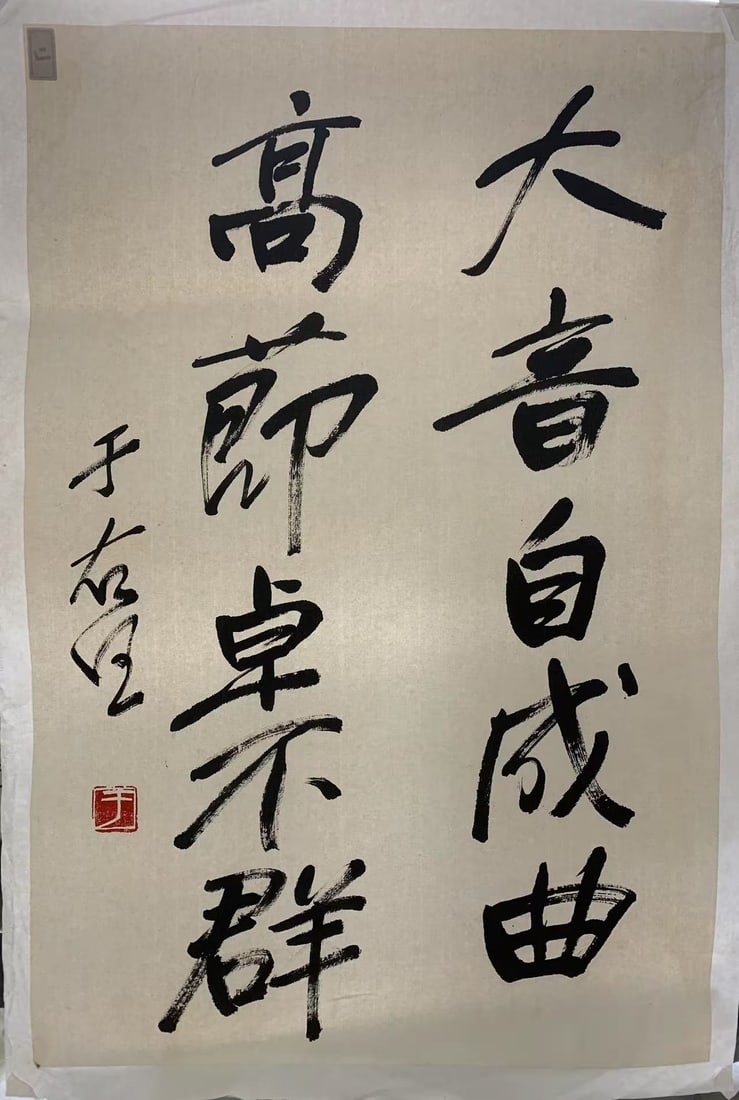 大音自成曲
高節卓不群
于右任
于